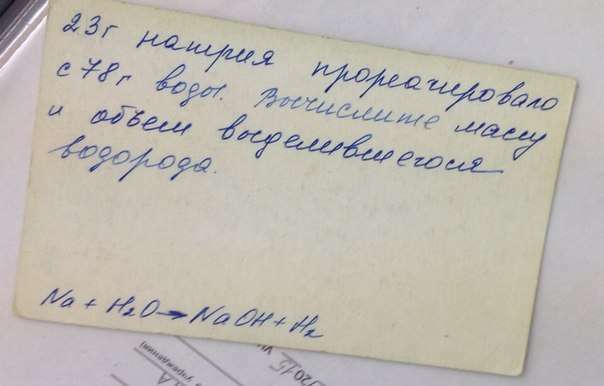 23 г натрия прореагировало
с 78 г воды. Вычислите массу
и объем выделившегося
водорода.
Na + H₂O → NaOH + H₂
учреждения)